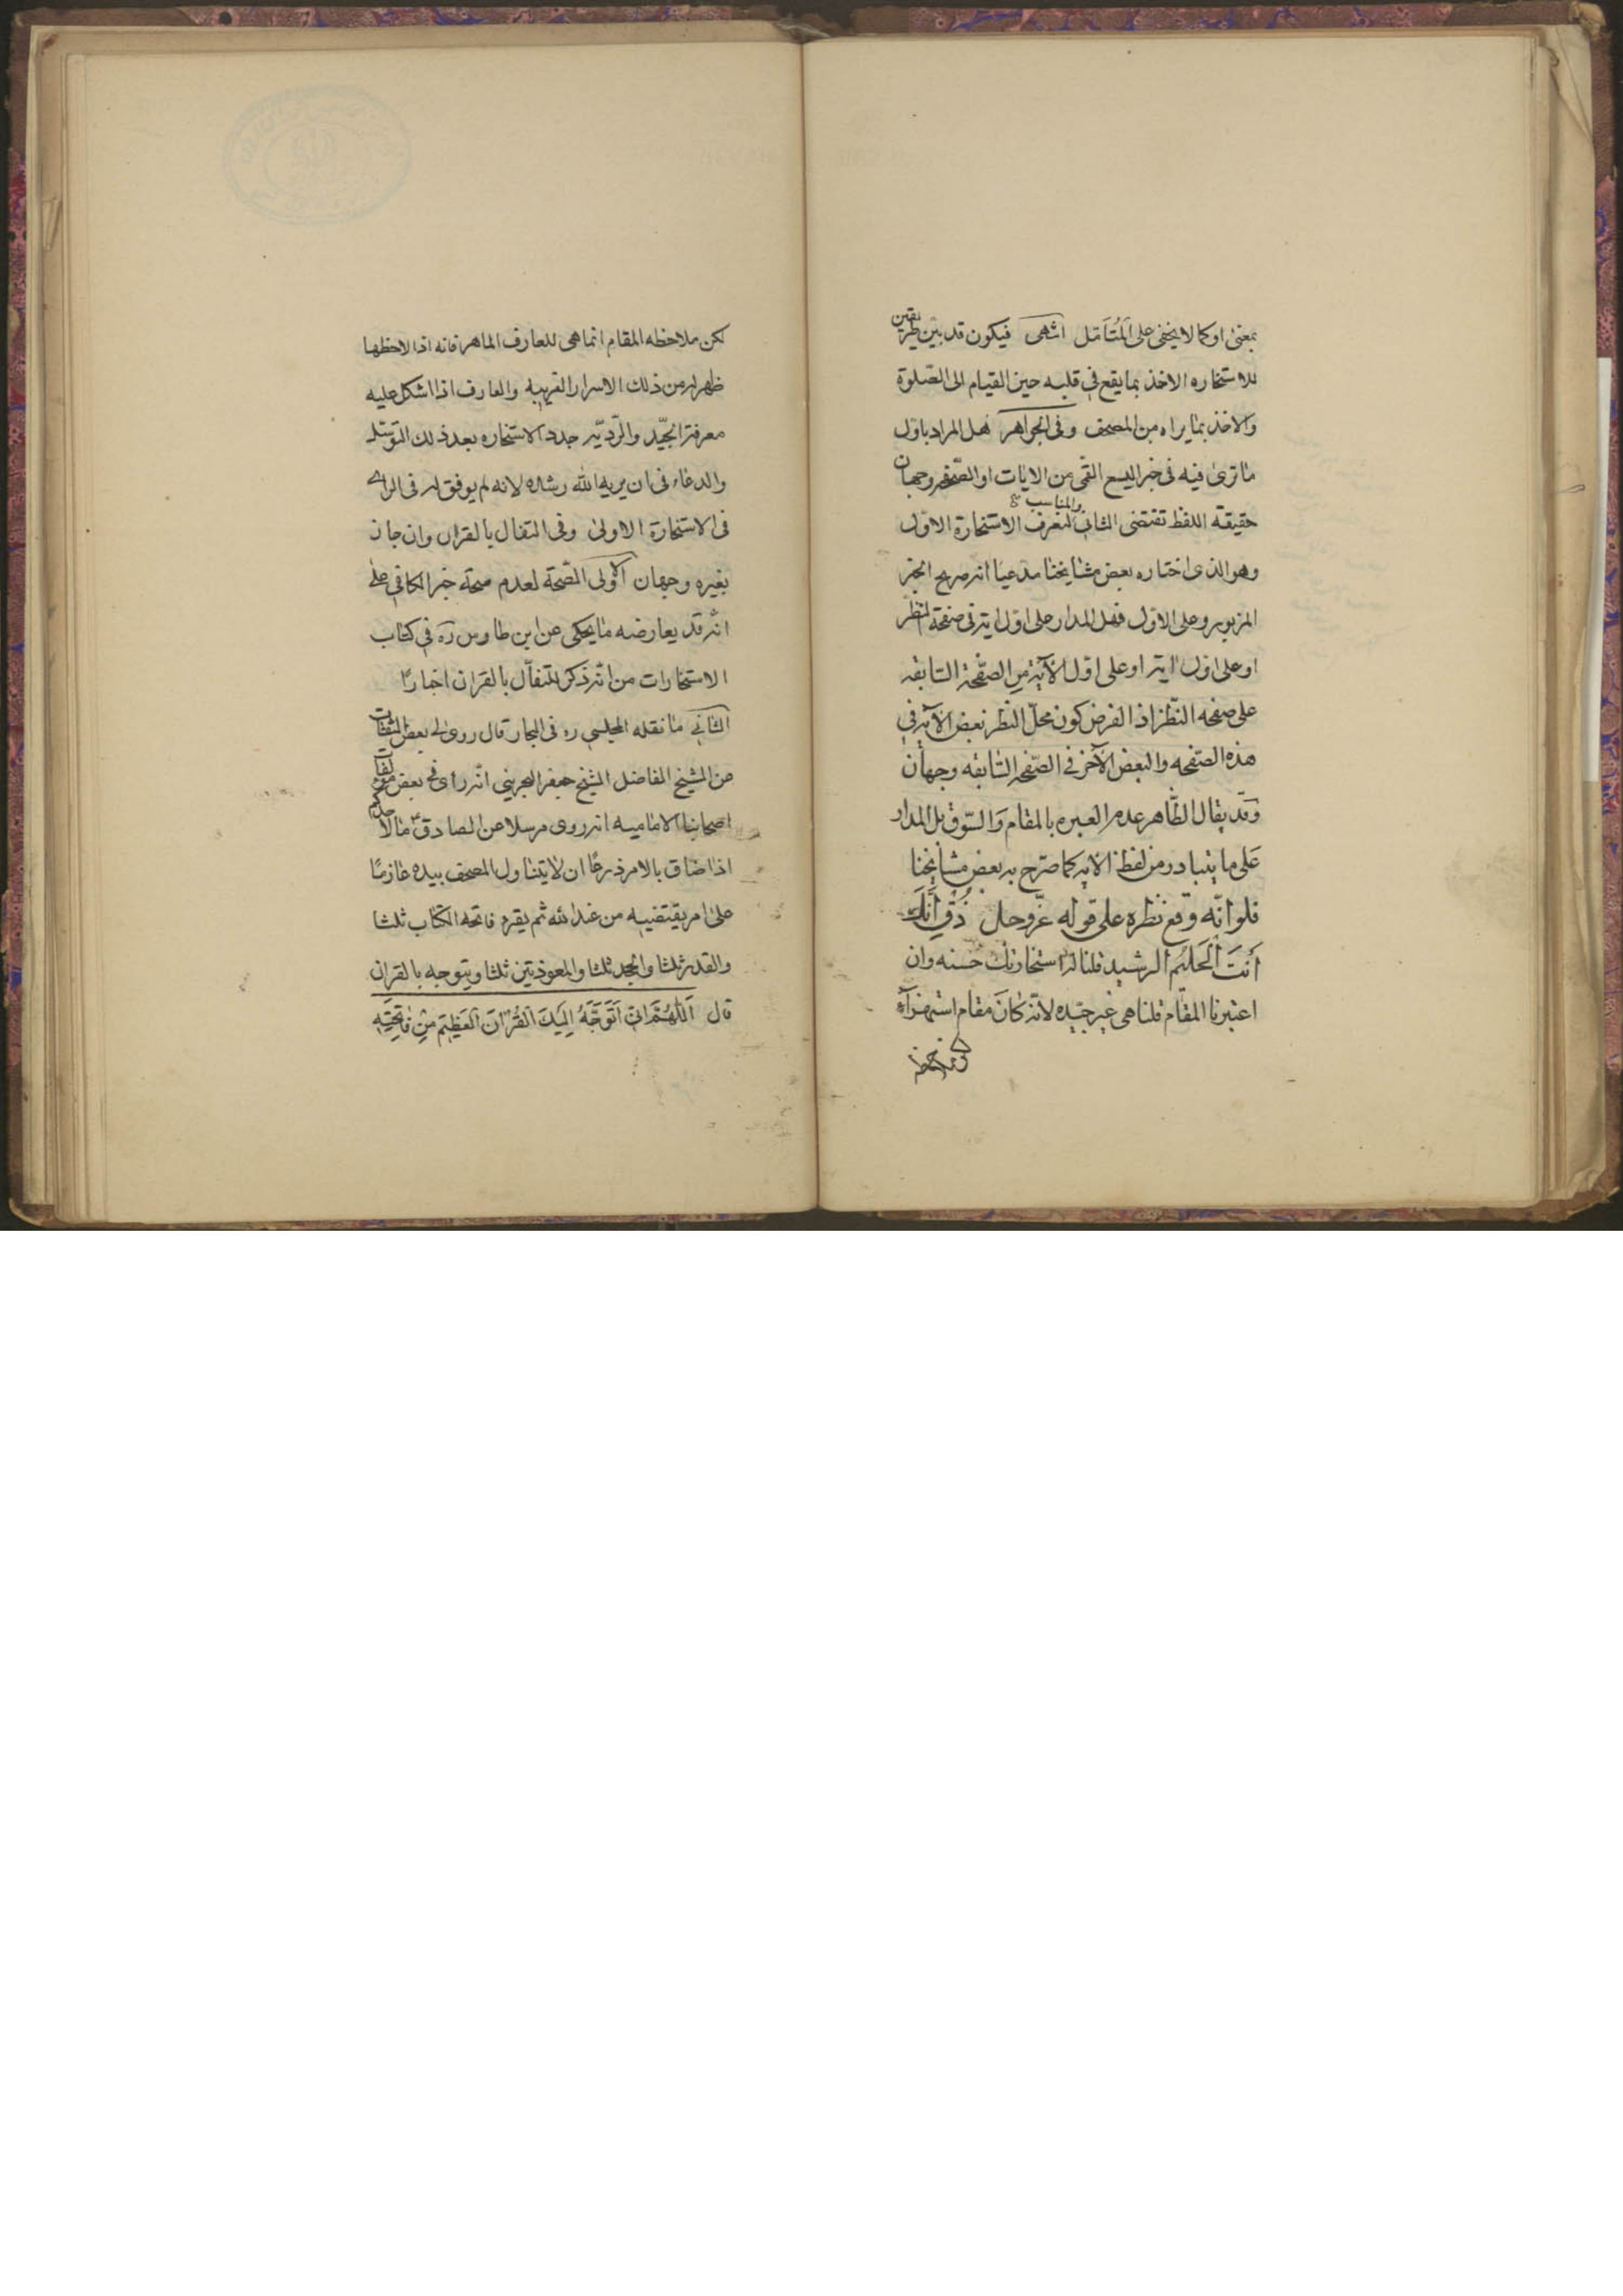 بمعنى او كما لا يخفى على المُتَأمّل انتهى فيكون قد بيّن طريقين
للاستخاره الاخذ بما يقع في قلبه حين القيام الى الصّلوة
والاخذ بما يراه من المصحف وفى الجواهر فهل المراد باوّل
ما ترى فيه فى خبر اليسع القمّى من الايات او الصّفحه وجهان
حقيقة اللفظ تقتضى الثانى والمناسب لتعرف الاستخارة الاوّل
وهو الذى اختاره بعض مشايخنا مدعيا انه صريح الخبر
المزبور وعلى الاوّل فهل المدار على اوّل ايه فى صفحة النّظر
او على اوّل ايه او على اوّل الآية من الصّفحة السّابقه
على صفحه النّظر اذ الفرض كون محلّ النّظر بعض الآيه في
هذه الصّفحه والبعض الآخر في الصّفحه السّابقه وجهان
وقد يقال الظّاهر عدم العبره بالمقام وَالسّوق بل المدار
عَلى ما يتبادر من لفظ الايه كما صرّح به بعض مشايخنا
فلو انّه وقع نظره على قوله عزّوجل ذُقْ اِنَّكَ
أَنتَ الْحَليْم الرشيد قلنا له استخارتك حَسنه وان
اعتبرنا المقام قلنا هى غير جيّده لانّه كانَ مقام استهزآء
لكن ملاحظه المقام انما هى للعارف الماهر فانه اذا لاحظها
ظهر له من ذلك الاسرار الغريبه والعارف اذا اشكل عليه
معرفة الجيّد والرّديّه جدد الاستخاره بعد ذلك التوسّل
والدعاء فى ان يريه الله رشده لانه لم يوفق له فى الراى
فى الاستخارة الاولى وفى التفال بالقران وان جاز
بغيره وجهان الاولى الصّحة لعدم صحة خبر الكافي على
انّه قد يعارضه ما يحكى عن ابن طاوس ره في كتاب
الاستخارات من انّه ذكر للتفأل بالقران اخبارًا
الثانى ما نقله المجلسى ره فى البحار قال روى لى بعض الثقات
عن الشيخ الفاضل الشيخ جعفر البحرينى انّه راى فى بعض مؤلفات
اصحابنا الاماميه انه روى مرسلا عن الصادق ع ما لاحدكم
اذا ضاق بالامر ذرعًا ان لا يتناول المصحف بيده عازمًا
على امر يقتضيه من عند الله ثم يقرء فاتحة الكتاب ثلثا
والقدر ثلثا والجحد ثلثا والمعوذتين ثلثا ويتوجه بالقران
قال اَللّهُمَّ اِنّى اَتَوَجَّهُ اِلَيكَ بالقُرْانَ العَظِيْم مِنْ فَاتحِتَه